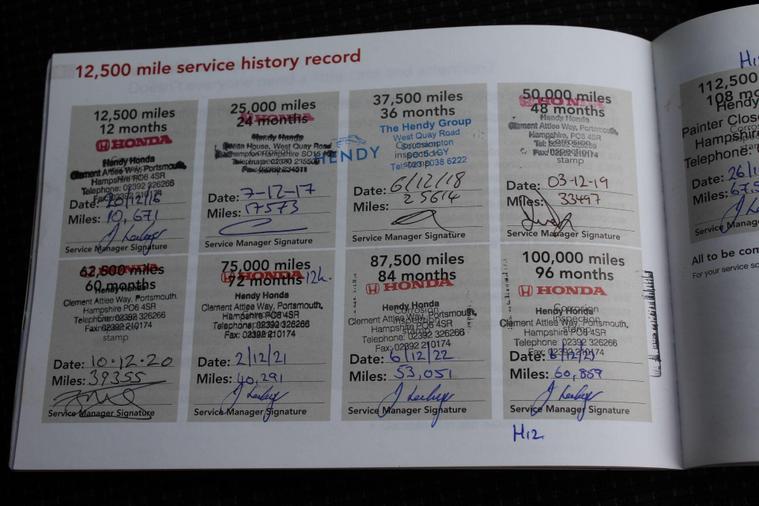 12,500 mile service history record
12,500 miles
12 months
HONDA
Hendy Honda
Clement Attlee Way, Portsmouth,
Hampshire PO6 4SR
Telephone: 02392 326266
Fax: 02392 210174
Date: 20/12/16
Miles: 10,671
Service Manager Signature
25,000 miles
24 months
HONDA
Hendy Honda
House, West Quay Road
Date: 7-12-17
Miles: 17573
Service Manager Signature
37,500 miles
36 months
The Hendy Group
West Quay Road
HENDY
Date: 6/12/18
Miles: 25614
Service Manager Signature
50,000 miles
48 months
HONDA
Hendy Honda
Clement Attlee Way, Portsmouth,
Hampshire, PO6 4SR
stamp
Date: 03-12-19
Miles: 33497
Service Manager Signature
62,500 miles
60 months
HONDA
Hendy Honda
Clement Attlee Way, Portsmouth,
Hampshire PO6 4SR
Telephone: 02392 326266
Fax: 02392 210174
stamp
Date: 10.12.20
Miles: 39355
Service Manager Signature
75,000 miles
72 months
HONDA
Hendy Honda
Clement Attlee Way, Portsmouth,
Hampshire PO6 4SR
Telephone: 02392 326266
Fax: 02392 210174
Date: 2/12/21
Miles: 40,291
Service Manager Signature
87,500 miles
84 months
HONDA
Hendy Honda
Clement Attlee Way, Portsmouth,
Hampshire PO6 4SR
Telephone: 02392 326266
Fax: 02392 210174
Date: 6/12/22
Miles: 53,051
Service Manager Signature
100,000 miles
96 months
HONDA
Hendy Honda
Clement Attlee Way, Portsmouth,
Hampshire PO6 4SR
Telephone: 02392 326266
Fax: 02392 210174
Date:
Miles: 60,859
Service Manager Signature
H12
112,500
108
Hendy
Painter Close
Hampshire
Telephone:
Date: 26/1
Miles: 67,5
Service Manager
All to be con
For your service sc